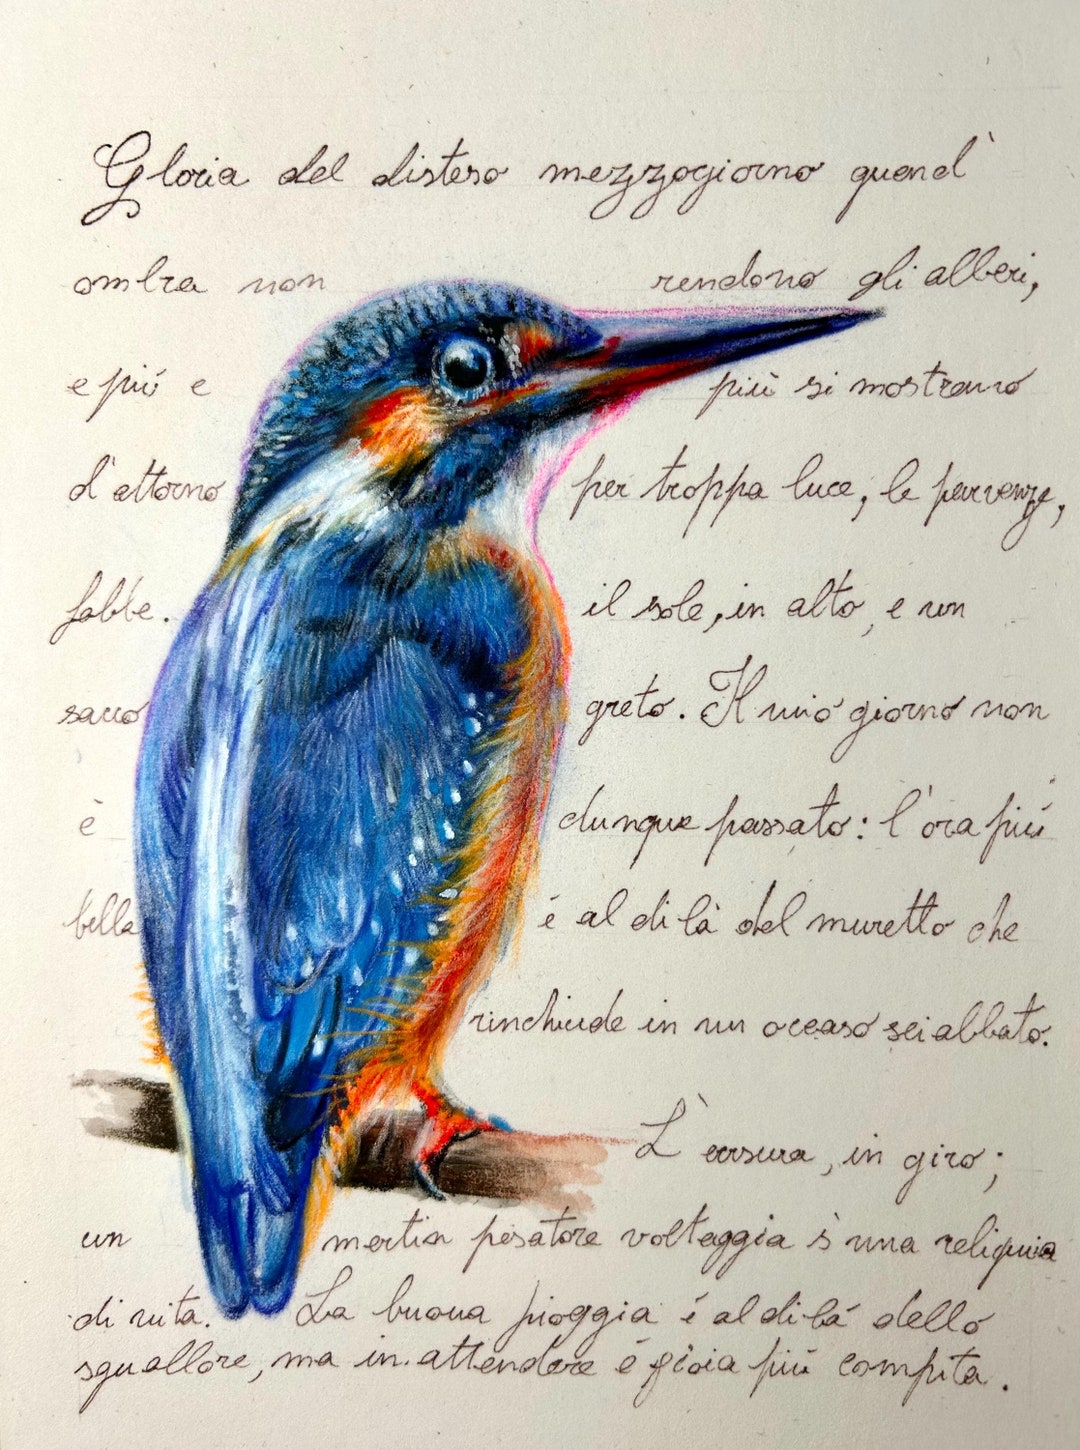 Gloria del disteso mezzogiorno quand'
ombra non rendono gli alberi,
e più e più si mostrano
d'attorno per troppa luce, le parvenze,
falbe. il sole, in alto, e un
secco greto. Il mio giorno non
è dunque passato: l'ora più
bella è al di là del muretto che
rinchiude in un occaso scialbato.
L'arsura, in giro;
un martin pescatore volteggia s'una reliquia
di vita. La buona pioggia è al di là dello
squallore, ma in attendere è gioia più compita.